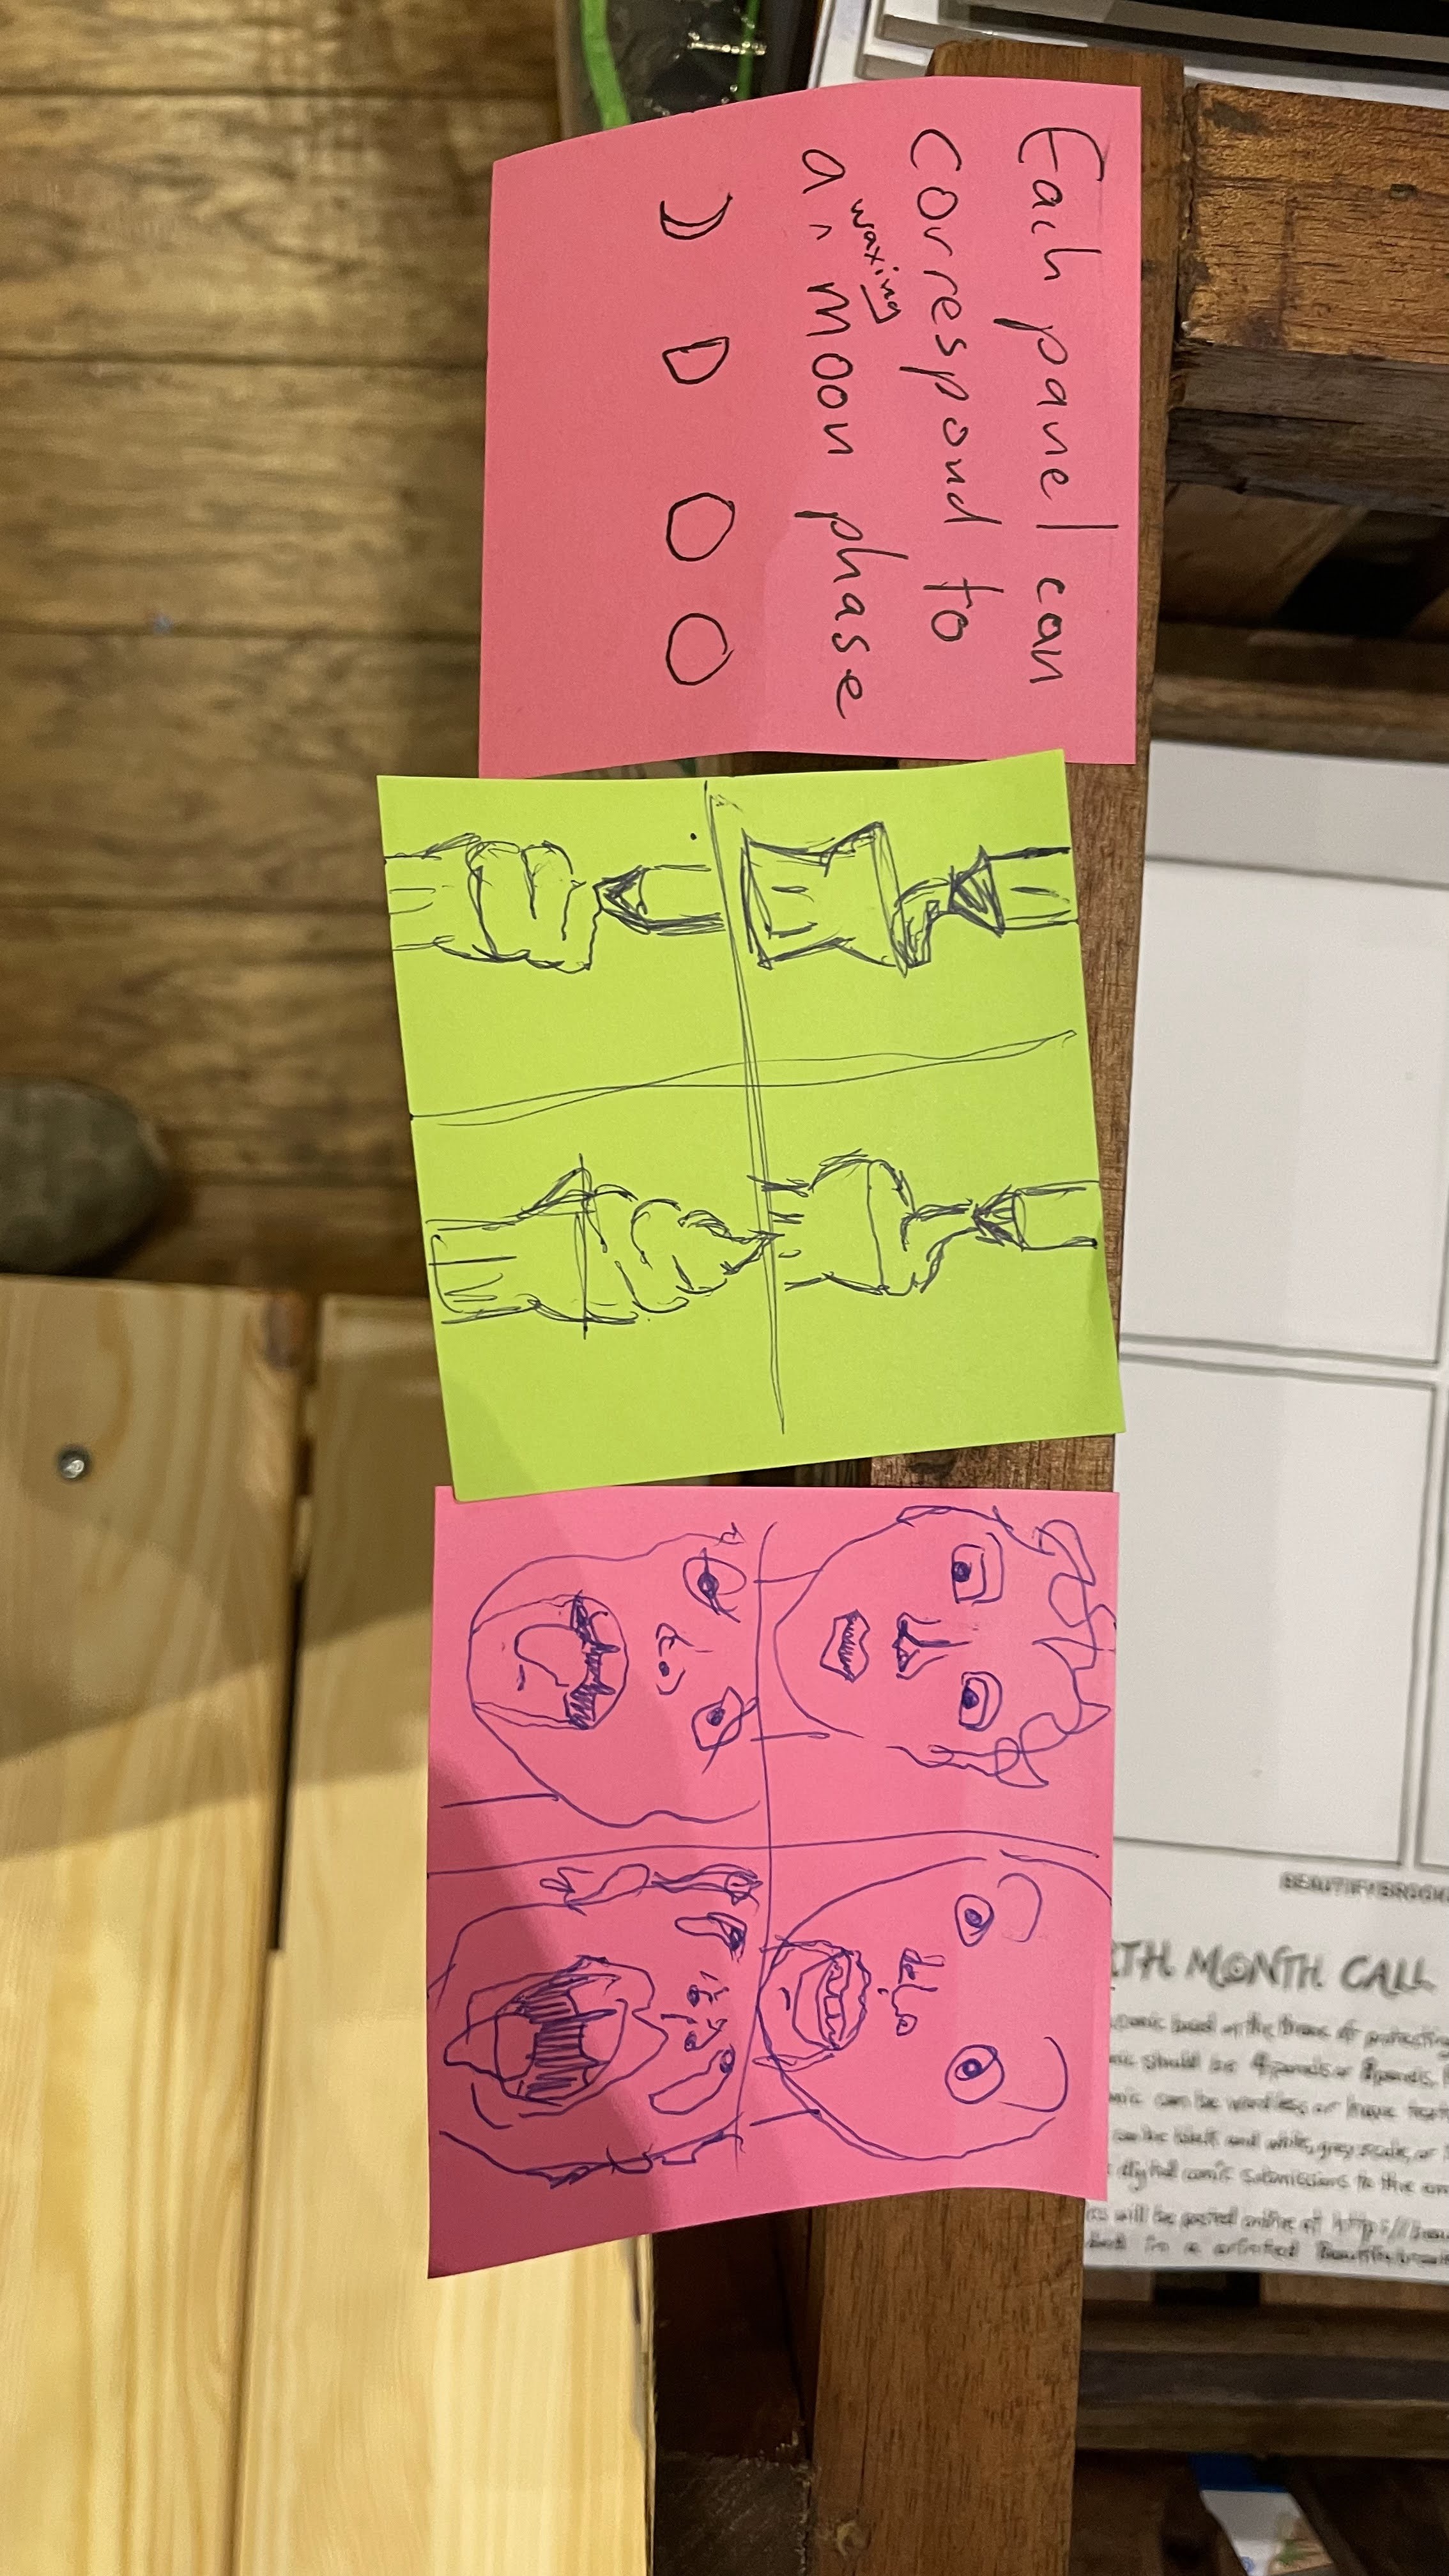 Each panel can
correspond to
a ^ moon phase
waxing
BEAUTIFYBROOK
TH MONTH CALL
comic based on the theme of protecting
should be 4 panels or 8 panels.
can be wordless or have text
can be black and white, grey scale, or
digital comic submissions to the em
will be posted online at http://
in a printed Beautifybrook